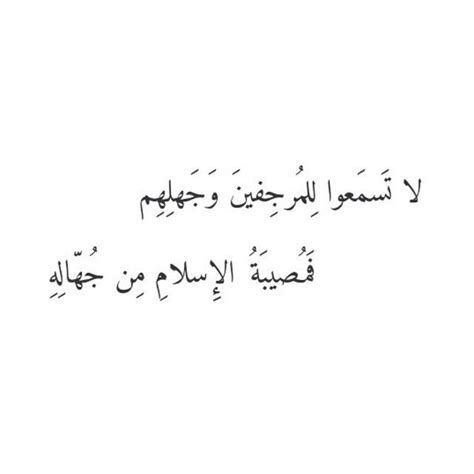 لا تَسمَعوا لِلمُرجِفينَ وَجَهلِهِم
فَمُصيبَةُ الإِسلامِ مِن جُهّالِهِ